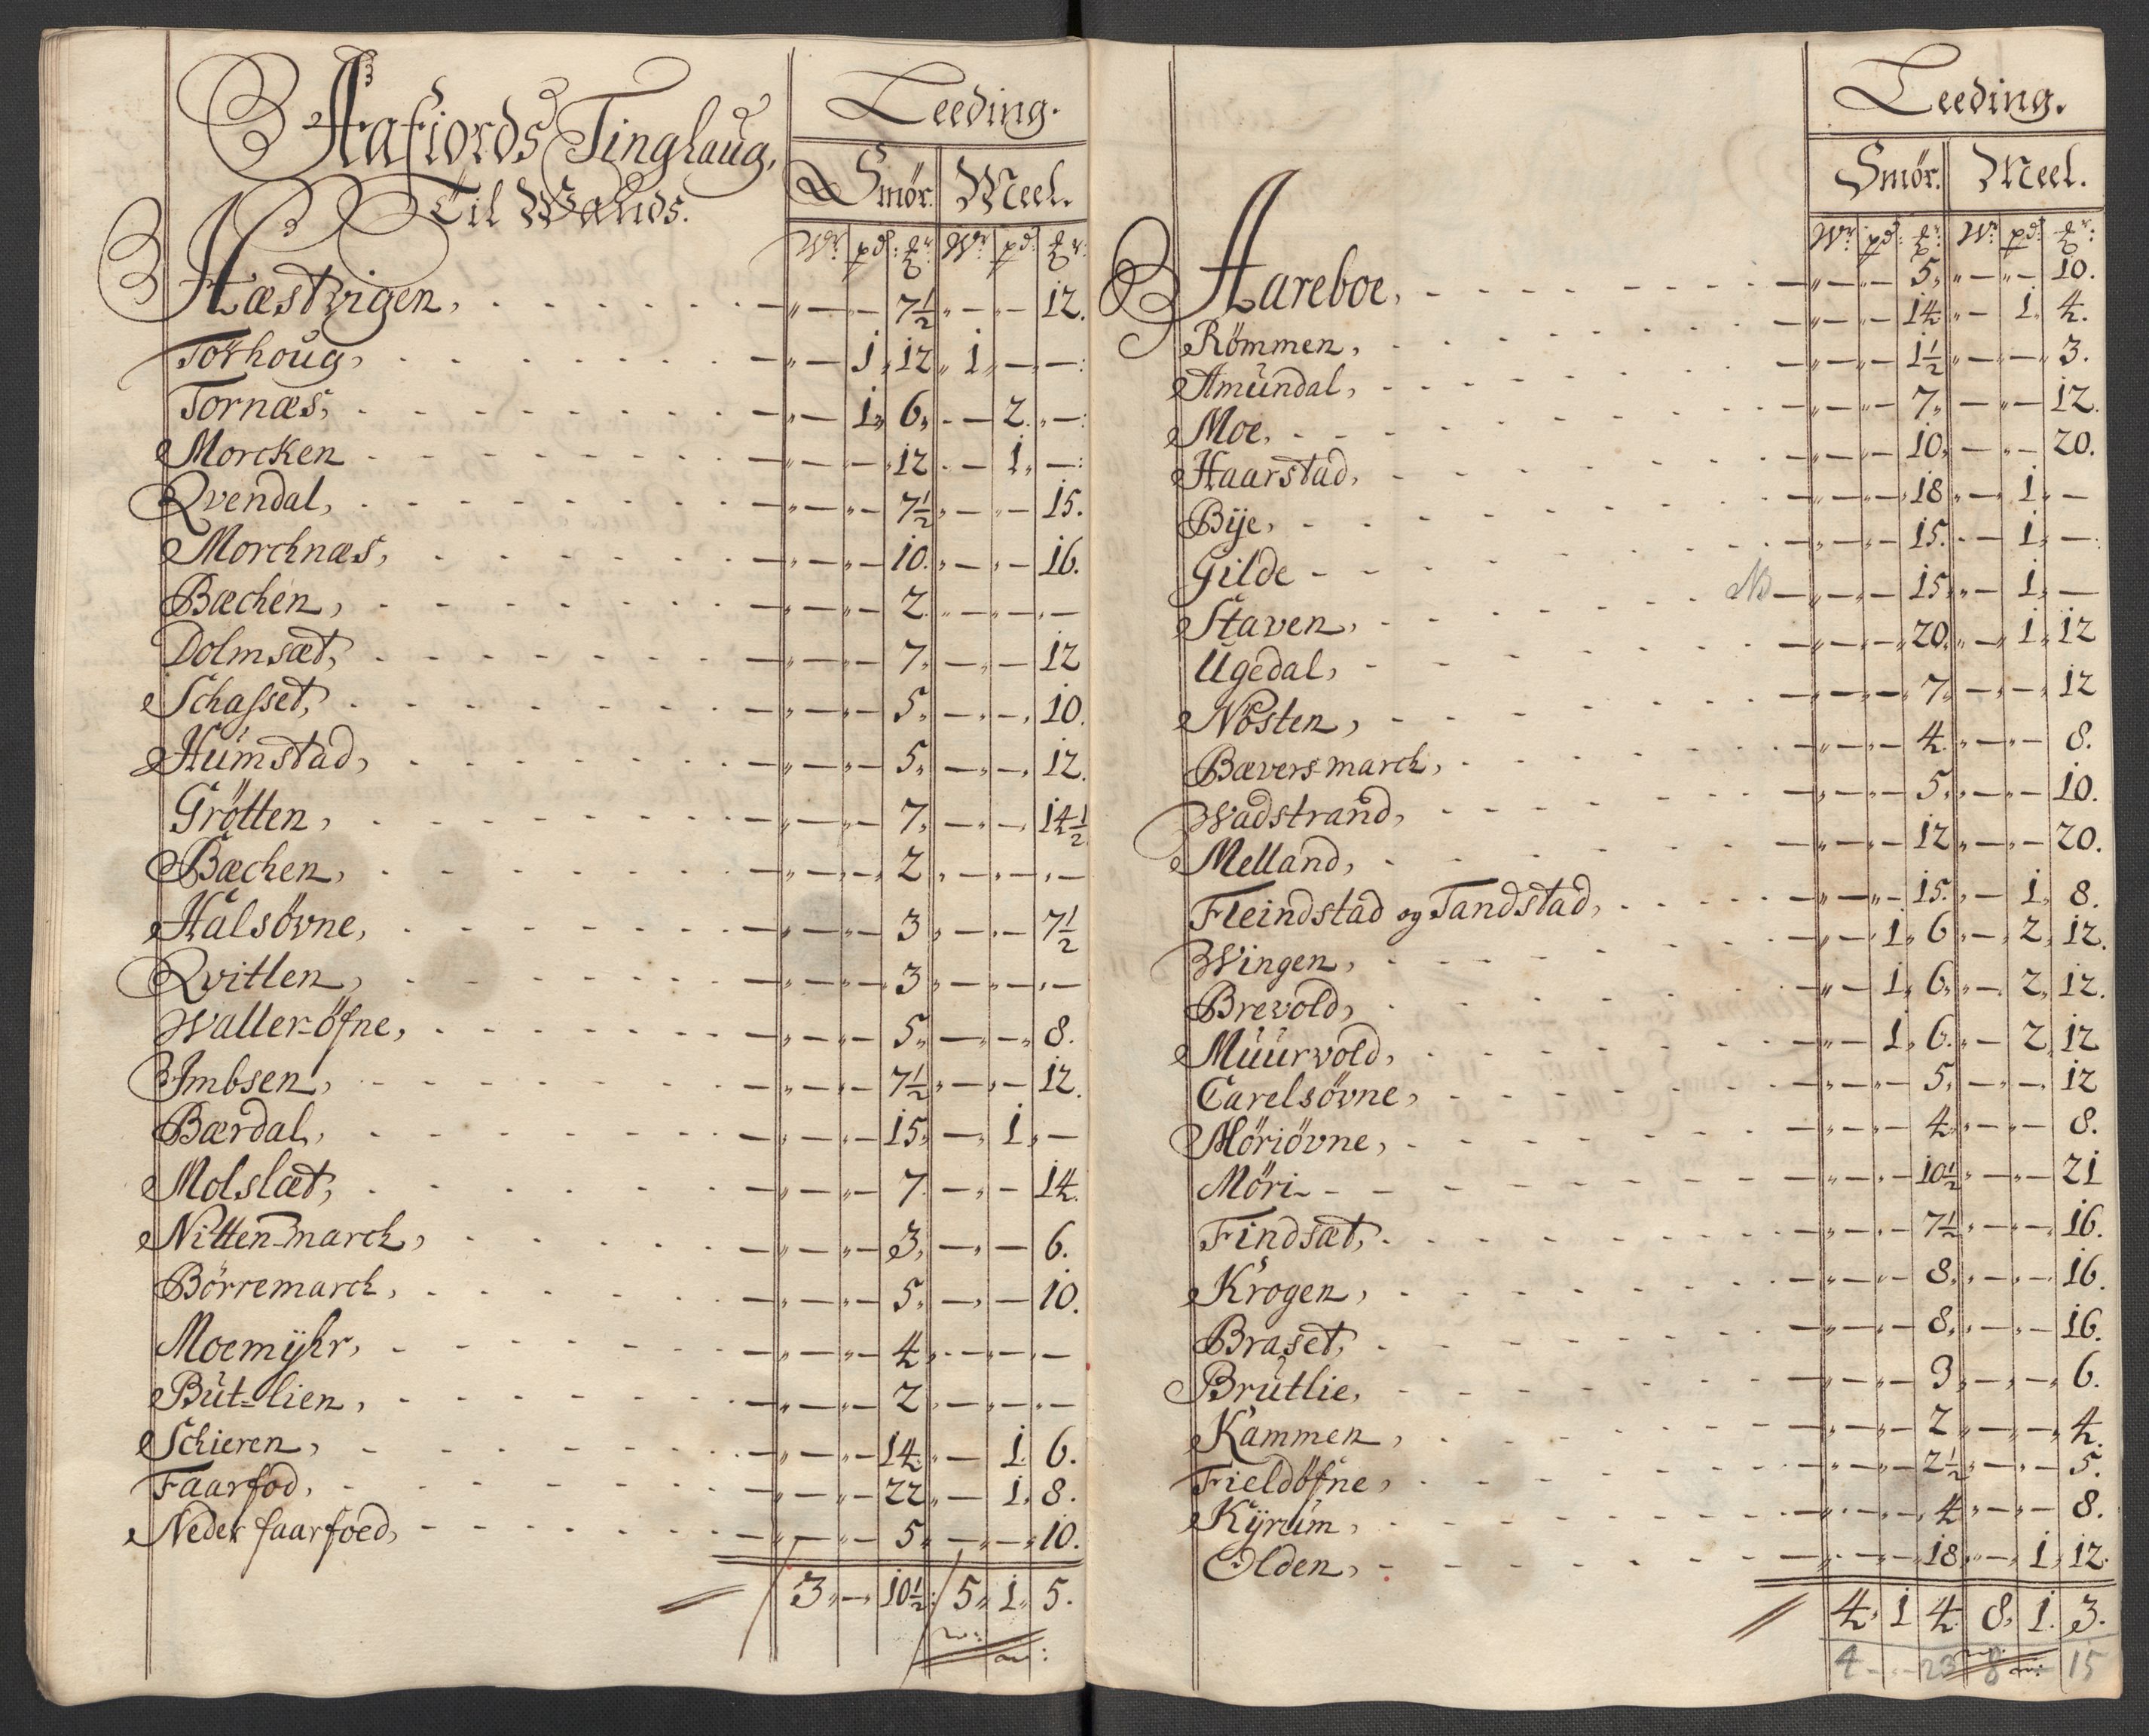 Aafiords Tinglaug,
Til Wands.
Leeding.
Smör. Meel.
Wr: pd: Wr: pd:
Hæstvigen, " — " — 7½ " — " — 12.
Torhoug, " — 1 " 12 " 1 " — " —
Tornæs, " — 1 " 6 " — 2 " —
Morcken " — " — 12 " — 1 " —
Qvendal, " — " — 7½ " — " — 15.
Morchnæs, " — " — 10. " — " — 16.
Bæchen, " — " — 2 " — " — " —
Dolmsæt, " — " — 7 " — " — 12
Schasset, " — " — 5 " — " — 10.
Humstad, " — " — 5 " — " — 12.
Grötten, " — " — 7 " — " — 14½
Bæchen, " — " — 2 " — " — " —
Halsövne, " — " — 3 " — " — 7½
Qvitlen, " — " — 3 " — " — " —
Waller-öfne, " — " — 5 " — " — 8.
Imbsen, " — " — 7½ " — " — 12.
Bærdal, " — " — 15 " — 1 " —
Molslæt, " — " — 7 " — " — 14.
Nitten-march, " — " — 3 " — " — 6.
Börremarch, " — " — 5 " — " — 10.
Moemÿhr, " — " — 4 " — " — " —
But-lien, " — " — 2 " — " — " —
Schieren, " — " — 14 " — 1 6.
Faarfod, " — " — 22 " — 1 " 8.
Neder faarfoed, " — " — 5 " — " — 10.
3 " — 10½ 5 " 1 " 5.
Leeding.
Smör. Meel.
Wr: pd: Wr: pd:
Aareboe, " — " — 5 " — " — 10.
Römmen, " — " — 14 " — 1 4.
Amundal, " — " — 1½ " — " — 3.
Moe, " — " — 7 " — " — 12.
Haarstad, " — " — 10 " — " — 20.
Bije, " — " — 18 " — 1 " —
Gilde " — " — 15. " — 1 " —
Staven, NB " — " — 15 " — 1 " —
Ugedal, " — " — 20 " — 1 " 12
Nösten, " — " — 7 " — " — 12
Bævers-march, " — " — 4 " — " — 8.
Wadstrand, " — " — 5 " — " — 10.
Melland, " — " — 12 " — " — 20.
Fleindstad og Tandstad, " — " — 15. " — 1 " 8.
Wingen, " — 1 " 6 " — 2 " 12.
Brevold, " — 1 " 6 " — 2 " 12.
Muurvold, " — 1 " 6. " — 2 " 12
Carelsövne, " — " — 5 " — " — 12
Möriövne, " — " — 4 " — " — 8.
Möri " — " — 10½ " — " — 21
Findsæt, " — " — 7½ " — " — 16.
Krogen, " — " — 8 " — " — 16.
Braset, " — " — 8 " — " — 16.
Brutlie, " — " — 3 " — " — 6.
Kammen, " — " — 2 " — " — 4.
Fieldöfne, " — " — 2½ " — " — 5.
Kÿrum, " — " — 4 " — " — 8.
Olden, " — " — 18 " — 1 " 12.
4 " 1 4 8 " 1. 3.
4 - - 23 8 - 15